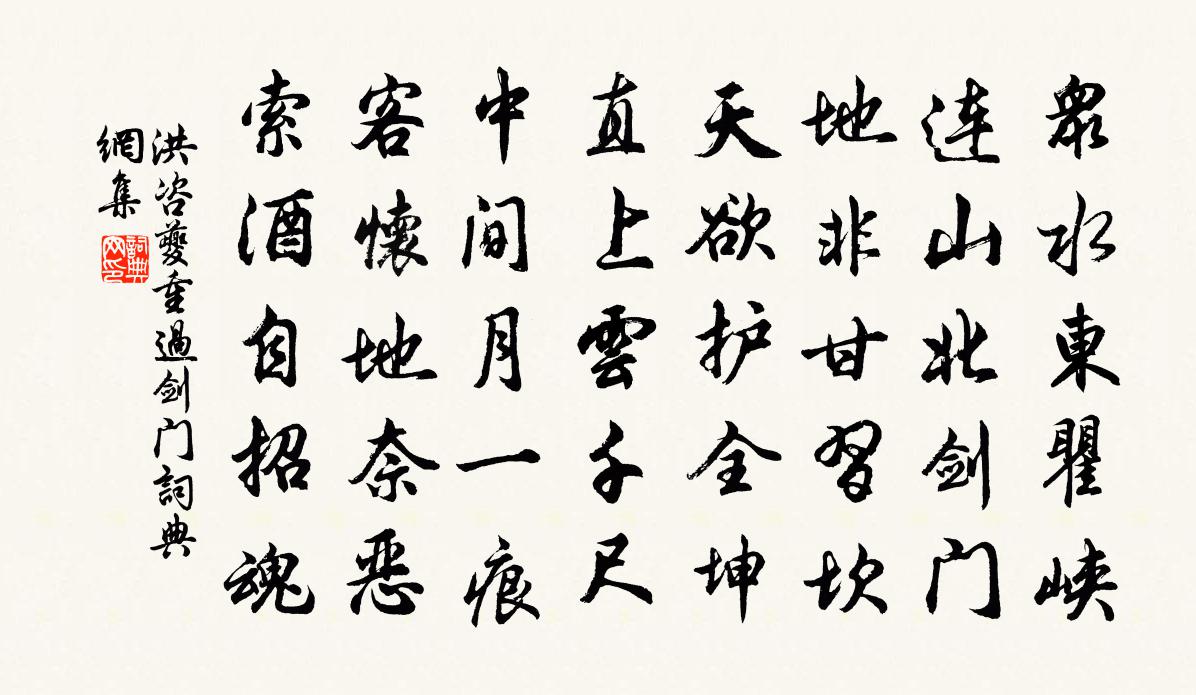 衆水東瞿峡
连山北剑门
地非甘習坎
天欲护全坤
直上雲千尺
中间月一痕
客懷地奈恶
索酒自招魂
洪咨夔重過剑门詞典
網集
詞典网印